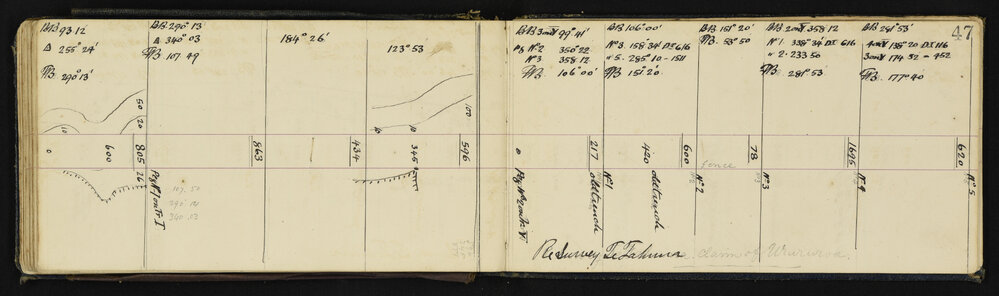 BB 93 12
Δ 255° 24'
FB 290° 13'
BB 290° 13'
Δ 340° 03
FB 107 49
184° 26'
123° 53
50
20
10
100
10
10
0
600
805
863
434
345
596
26
Peg No 1 on Tr I
107. 50
290° 12
340. 03
47
99° 41'
Pg No 2 350° 22
No 3 358 12
FB 106° 00'
BB 106° 00'
No 3. 158° 34' DI 616
" 5. 285° 10 - 1511
FB 151° 20
BB 151° 20'
FB. 53° 50
358 12
No 1 338° 34' DI 616
" 2. 233 50
FB 281° 53'
BB 281° 53'
138° 20 DI 116
174 32 - 452
FB. 177° 40
0
217
420
600
78
1695
620
fence
No 1
old trench
old trench
No 2
No 3
No 5
Re Survey Te Tahuna claim of Wururoa